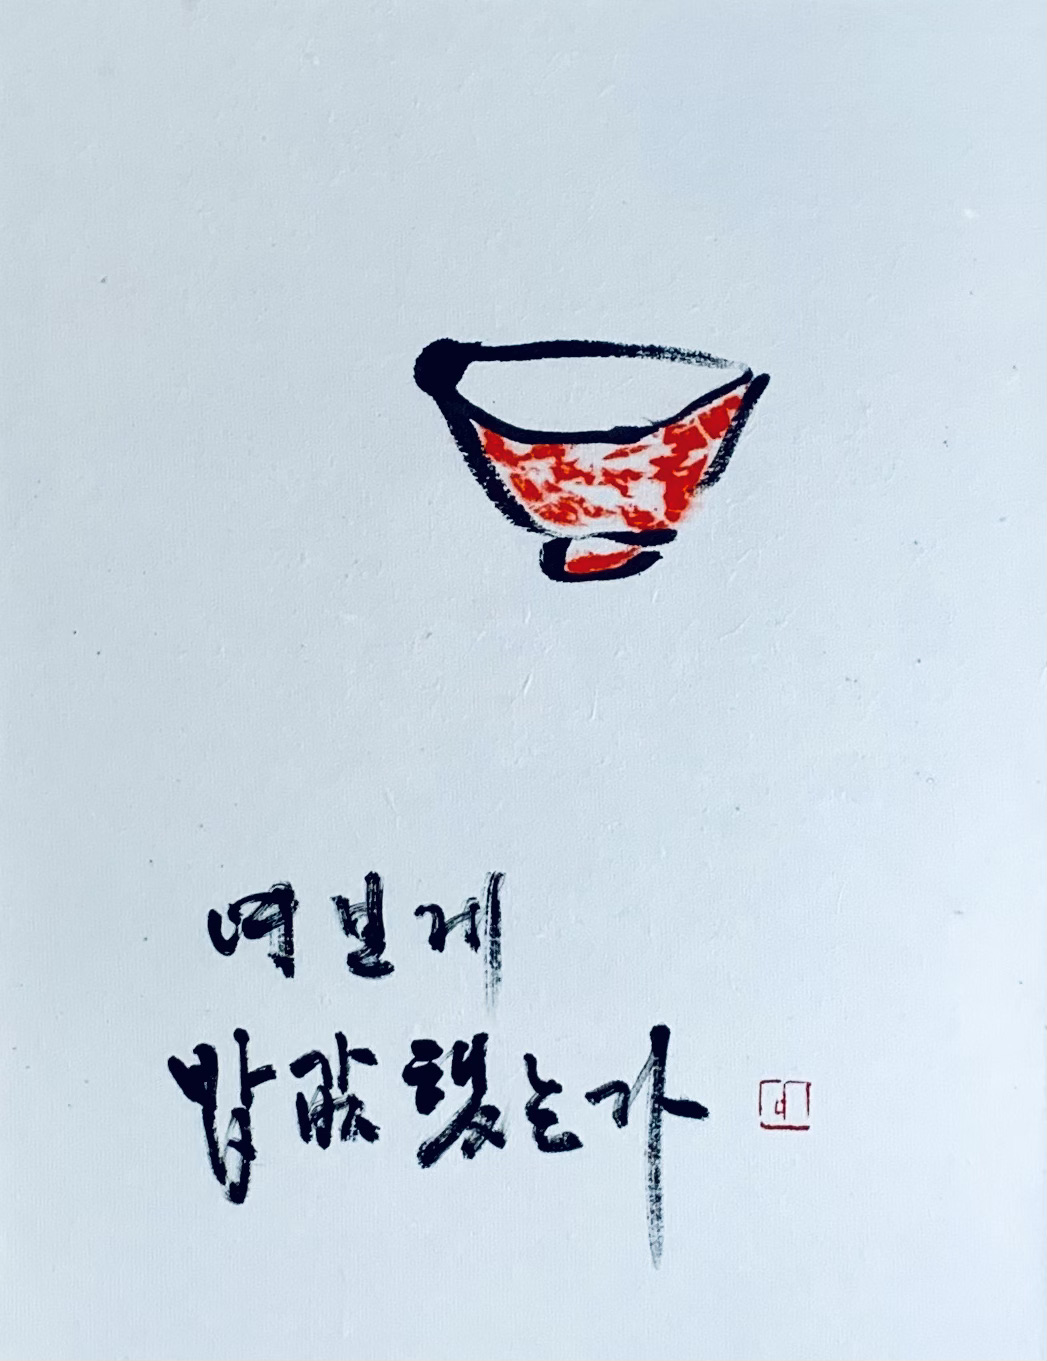 여보게
밥값 했는가